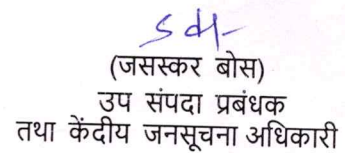 sd/-
(जसस्कर बोस)
उप संपदा प्रबंधक
तथा केंदीय जनसूचना अधिकारी